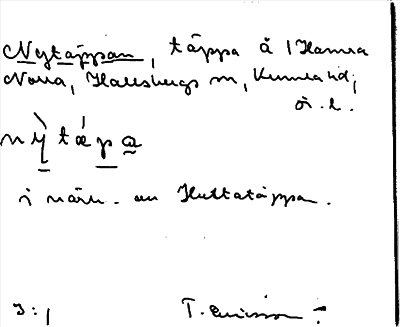 Nytäppan, täppa å 1 Hamra
Norra, Hallsbergs sn, Kumla hd,
Ö. l.
nỳ tǽpa
i närh. av Hultatäppan.
3:1 T. Ericsson